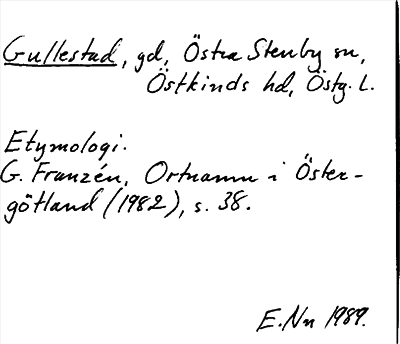 Gullestad, gd, Östra Stenby sn,
Östkinds hd, Östg. L.
Etymologi.
G. Franzén, Ortnamn i Öster-
götland (1982), s. 38.
E. Nn 1989.